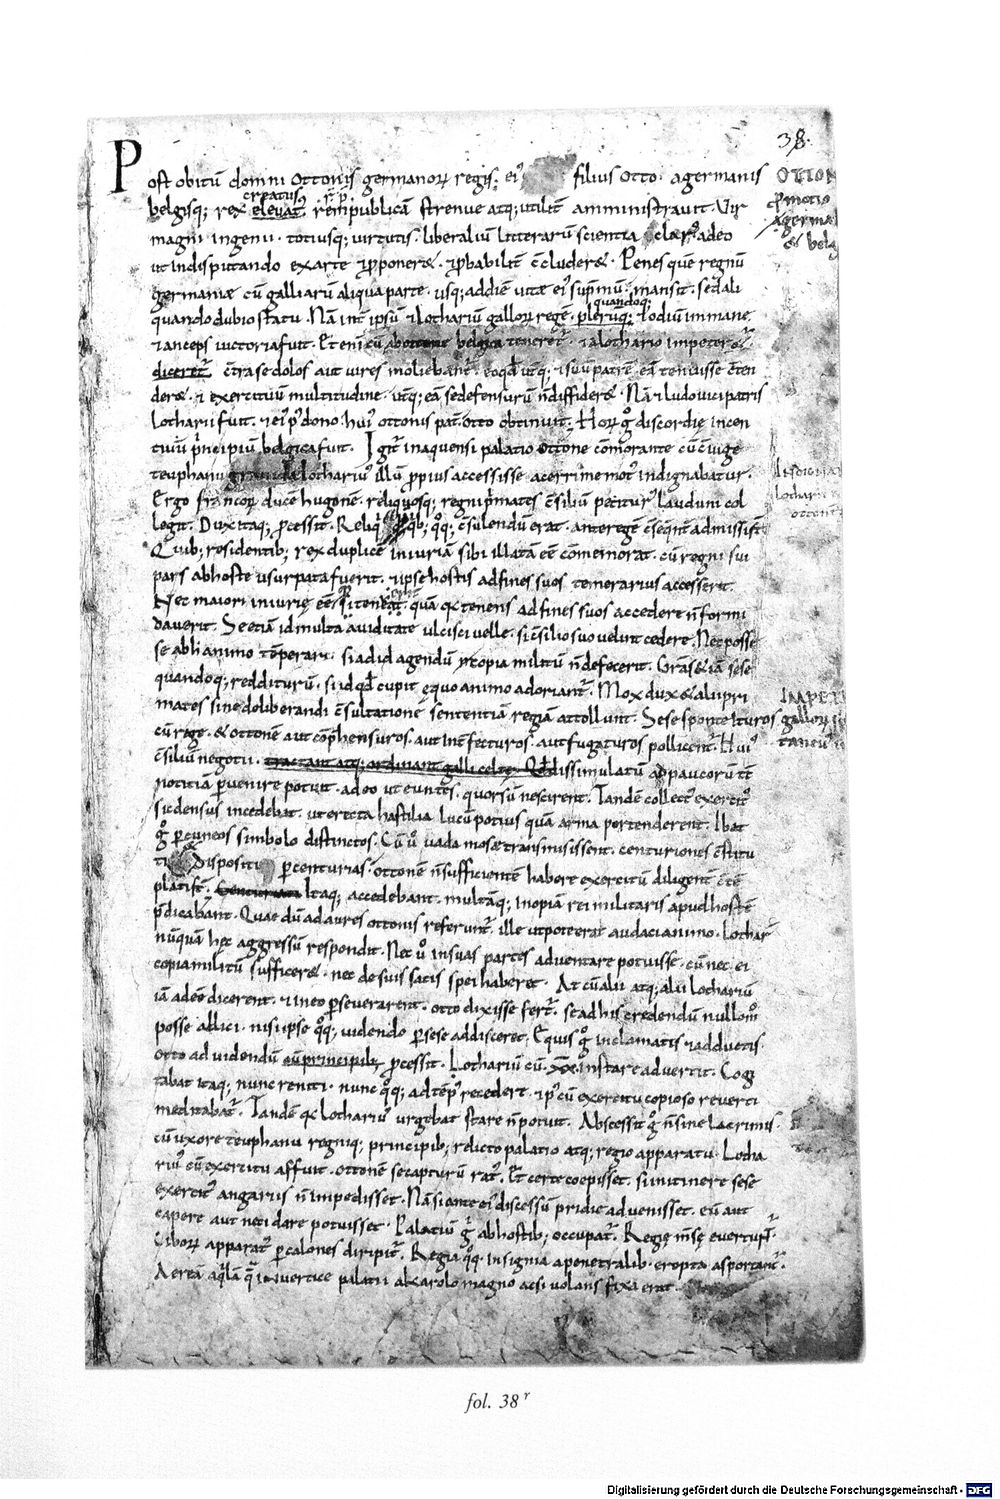 38.
Post obitū domni Ottonis germanorꝝ regis. ei' filius Otto. agermanis
OTTON
creatus
belgisq; rex elevat' rēmpublicā strenue atq; utilit̄ amministravit. Vir
ꝓmotio
magni ingenii. totiusq; virtutis. liberaliū litterarū scientia clar' adeo
agerma
ut in disputando ex arte & ꝓponeret. & ꝓbabilit̄ c̄cluderet. Penes quē regnū
& belg
germaniæ cū galliarū aliqua parte. usq; ad diē vitæ ei' supmū mansit. sed ali
quandoq;
quando dubio statu. Nā int̄ ipsū & lothariū gallorꝝ regē. plerūq; & odiū immane.
& anceps victoria fuit. Et enī cū belgica teneret'. & a lothario impeteret'
diceret' c̄tra se dolos aut vires moliebant'. eo qđ utq; & suū patrē eā tenuisse c̄ten
deret. & exercituū multitudine. utq; eā se defensurū n̄ diffideret. Nā & ludovici patris
Lotharii fuit. & ei' p' dono. hui' ottonis pat̄ otto obtinuit. Horꝝ g° discordie incen
tivū principiū belgica fuit. Igit' in aquensi palatio ottone cōmorante cū c̄iuge
teuphanu gravida lothariu' illū ꝓpius accessisse acerrime mot' indignabatur.
INDIGNA
Ergo francorꝝ ducē hugonē. reliquosq; regni primates c̄siliū petitur' lauduni col
lotharii
legit. Dux itaq; ꝓcessit. Reliqⁱ q°q; c̄sulendū erat. ante regē c̄sequent̄ admissi sꝫ
ottonē
Quib; residentib; rex duplicē iniuriā sibi illatā eē cōmemorat. cū regni sui
pars ab hoste usurpata fuerit. & ipse hostis ad fines suos temerarius accesserit.
Nec maiori iniuriæ eē qⁱ tenuerit. quā qꝫ tenens ad fines suos accedere n̄ formi
daverit. Se etiā id multa aviditate ulcisci velle. si c̄silio suo velint cedere. Nec posse
se ab hi animo tēperari. si ad id agendū copia militū n̄ defecerit. Gr̄as etiā sese
quandoq; redditurū. si id qđ cupit equo animo adoriant'. Mox dux & alii pri
IMPET
mates sine deliberandi c̄sultatione sententiā regiā attollunt. Sese sponte ituros
gallorꝝ
cū rege. & ottonē aut cōp̄hensuros. aut int̄fecturos. aut fugaturos pollicent'. Hui'
c̄siliū negotii. tractant atq; ordinant galli celte. Qđ dissimulatū ad paucorū tc̄
notitiā ꝑvenire potuit. adeo ut euntes. quorsū nescirent. Tandē collect' exercit'
sic densus incedebat. ut erecta hastilia lucū potius quā arma portenderent. Ibat
g° ꝑ cuneos simbolo distinctos. Cū v° vada mosæ transmisissent. centuriones c̄stitu
ti & dispositi ꝑ centurias. ottonē n̄ sufficientē habere exercitū diligent̄ c̄tē
plati sꝫ. Itaq; accedebant. multāq; inopiā rei militaris apud hostē
p̄dicabant. Quæ dū ad aures ottonis referunt'. ille utpote erat audaci animo. Lothar'
nūquā hęc aggressū respondit. Nec v° in suas partes adventare potuisse. cū nec ei
copia militū sufficeret. nec de suis satis spei haberet. At cū alii atq; alii lothariū
iā adee dicerent. & in eo ꝑseverarent. otto dixisse fert'. se ad his credendū nullom°
posse allici. nisi ipse q°q; videndo ꝑ sese addisceret. Equis g° inclamatis & adductis.
otto ad videndū cū principib; ꝓcessit. Lothariū cū .xx. instare advertit. Cogi
tabat itaq; nunc reniti. nunc q°q; ad tēp' recedere. & p' cū exercitu copioso reverti
meditabat'. Tandē qꝫ lothariu' urgebat stare n̄ potuit. Abscessit g° n̄ sine lacrimis
cū uxore teuphanu regniq; principib; relicto palatio atq; regio apparatu. Lotha
riu' cū exercitu affuit. ottonē se capturū rat'. Et certe coepisset. si in itinere sese
exercit' angariis n̄ impedisset. Nā si ante ei' discessū pridie advenisset. eū aut
capere aut neci dare potuisset. Palatiū g° ab hostib; occupat'. Regię mēsę evertunt'.
Ciborꝝ apparat' ꝑ calones diripit'. Regia q°q; insignia a penetralib; erepta asportant'.
Aereā aqⁱlā quę in vertice palatii a karolo magno acsi volans fixa erat.
fol. 38 r
Digitalisierung gefördert durch die Deutsche Forschungsgemeinschaft - DFG